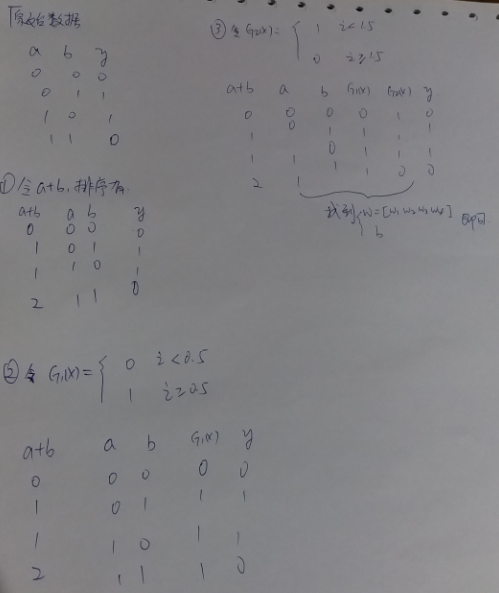 原始数据
a b y
0 0 0
0 1 1
1 0 1
1 1 0
① 令a+b,排序有
a+b a b y
0 0 0 0
1 0 1 1
1 1 0 1
2 1 1 0
② 令 G₁(x)= { 0 i<0.5
1 i≥0.5
a+b a b G₁(x) y
0 0 0 0 0
1 0 1 1 1
1 1 0 1 1
2 1 1 1 0
③ 令G₂(x)= { 1 i<1.5
0 i≥1.5
a+b a b G₁(x) G₂(x) y
0 0 0 0 1 0
1 0 1 1 1 1
1 1 0 1 1 1
2 1 1 1 0 0
找到 { W=[w₁ w₂ w₃ w₄] 即可
b